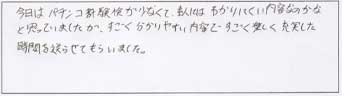 今日は パチンコ新聞は少なくて、私には わかりにくい内容なのかな
と思っていましたが、すごく分かりやすい内容で すごく楽しく 充実した
時間を送らせてもらいました。